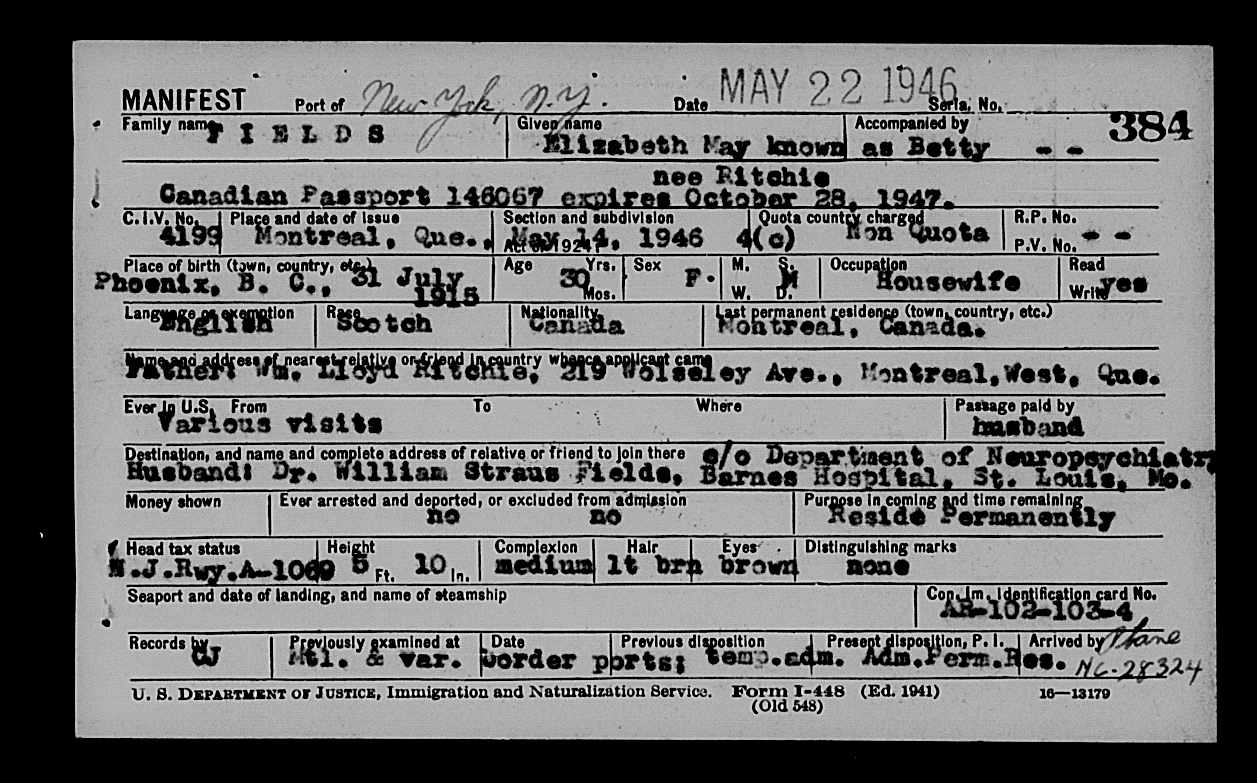 MANIFEST Port of New York, N.Y. Date MAY 22 1946 Serial No.
384
Family name FIELDS Given name Elizabeth May known as Betty Accompanied by - -
nee Ritchie
Canadian Passport 146067 expires October 28, 1947.
C.I.V. No. Place and date of issue Section and subdivision Quota country charged R.P. No.
4199 Montreal, Que., May 14, 1946 4(c) Non Quota - -
Act of 1924 P.V. No.
Place of birth (town, country, etc.) Age Yrs. Sex M. S. Occupation Read
Phoenix, B. C., 31 July 1915 30 Mos. F. W. D. M Housewife Write yes
Language or exemption Race Nationality Last permanent residence (town, country, etc.)
English Scotch Canada Montreal, Canada.
Name and address of nearest relative or friend in country whence applicant came
Father: Wm. Lloyd Ritchie, 219 Wolseley Ave., Montreal,West, Que.
Ever in U.S. From To Where Passage paid by
Various visits husband
Destination, and name and complete address of relative or friend to join there c/o Department of Neuropsychiatry
Husband: Dr. William Straus Fields, Barnes Hospital, St. Louis, Mo.
Money shown Ever arrested and deported, or excluded from admission Purpose in coming and time remaining
no no Reside Permanently
Head tax status Height Complexion Hair Eyes Distinguishing marks
N.J.Rwy.A-1069 5 Ft. 10 In. medium lt brn brown none
Seaport and date of landing, and name of steamship Con. Im. Identification card No.
AR-102-103-4
Records by Previously examined at Date Previous disposition Present disposition, P. I. Arrived by Plane
CJ Mtl. & var. border ports; temp.adm. Adm.Perm.Res. NC-28324
U. S. DEPARTMENT OF JUSTICE, Immigration and Naturalization Service. Form I-448 (Ed. 1941) 16—13179
(Old 548)